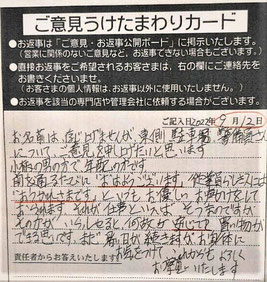 ご意見うけたまわりカード
●お返事は「ご意見・お返事公開ボード」に掲示いたします。
(営業に関係のないご意見など、お返事できない場合もございます。)
●直接お返事をご希望されるお客さまは、右の欄にご連絡先を
お書きくださいませ。
(お客さまの個人情報は、お返事以外に使用いたしません。)
●お返事を該当の専門店や管理会社に依頼する場合がございます。
ご記入日2022年9月12日
お名前は 存じ上げませんが 東側 駐車場 警備員さん
について ご意見を申し上げたいと思います
小柄の男の方で 年配の方です
前を通るたびに おはようございます、作業員らしき人には
おつかれさまです。といつも お優しい お声かけをして
おられます それが仕事といえば、そうですが
その方が いらっしゃると、何故か 感じて 声の力が
できる方です。まだ 暑い日が続きますが お身体に
お気をつけて これからも よろしく
お願いいたします
責任者からお答えいたします